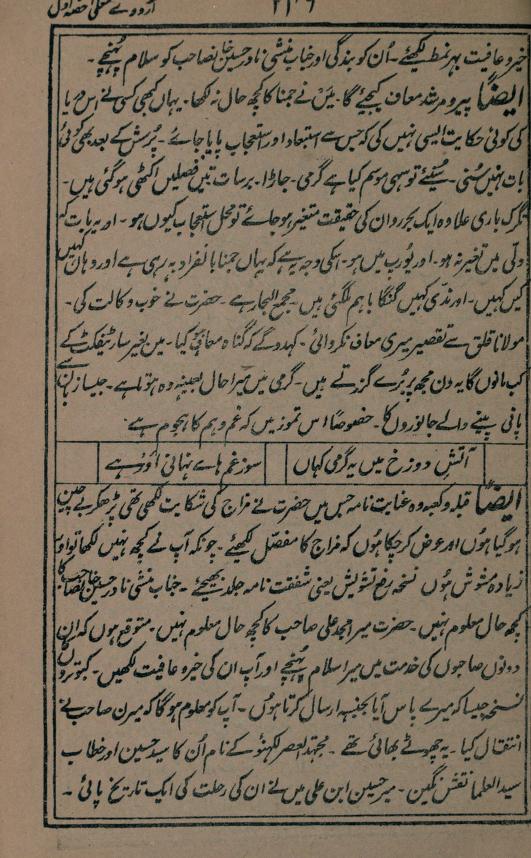 اردوے معلیٰ حصہ اول
۲۳۶
خیر و عافیت بہر نمط لکھیے۔ اُن کو بندگی اور جناب منشی نادر حسین خانصاحب کو سلام پہنچے۔
ایضاً پیر و مرشد معاف کیجیے گا۔ میں نے جمنا کا کچھ حال نہ لکھا۔ یہاں کبھی کسی نے اس دریا
کی کوئی حکایت ایسی نہیں کی کہ جس سے استبعاد اور استعجاب پایا جائے۔ پرسش کے بعد بھی کوئی
بات نہیں سُنی۔ سُنیئے تو سہی موسم کیا ہے گرمی۔ جاڑا۔ برسات تین فصلیں اکٹھی ہو گئی ہیں۔
تگرگ باری علاوہ ایک بحر رواں کی حقیقت متغیر ہو جائے تو محل استعجاب کیوں ہو۔ اور یہ بات کہ
دلی میں تغیر نہ ہو۔ اور پورب میں ہو۔ اسکی وجہ یہ ہے کہ یہاں جمنا بالانفراد بہ رہی ہے اور وہاں کہیں
کین کہیں۔ اور ندی کہیں گنگا باہم مل گئی ہیں۔ مجمع البحار ہے۔ حضرت نے خوب وکالت کی۔
مولانا قلق سے تقصیر میری معاف نکروائی۔ کہدو گے کہ گناہ معاف کیا۔ میں بغیر سارٹیفکٹ کے
کب مانوں گا یہ دن مجھ پر بُرے گزرتے ہیں۔ گرمی میں میرا حال بعینہ وہ ہوتا ہے۔ جیسا زبان سے
پانی پینے والے جانوروں کا۔ خصوصاً اس تموز میں کہ غم و ہم کا ہجوم ہے۔
آتش دوزخ میں یہ گرمی کہاں سوز غم ہاے نہانی اور ہے
ایضاً قبلہ و کعبہ وہ عنایت نامہ جس میں حضرت نے مزاج کی شکایت لکھی تھی پڑھکر بے چین
ہو گیا ہوں اور عرض کر چکا ہوں کہ مزاج کا مفصل لکھیے۔ چونکہ آپ نے کچھ نہیں لکھا تو اور
زیادہ مشوش ہوں نسخہ رفع تشویش یعنی شفقت نامہ جلد بھیجیے۔ جناب منشی نادر حسین خانصاحب کا
کچھ حال معلوم نہیں۔ حضرت میر امجد علی صاحب کا کچھ حال معلوم نہیں۔ متوقع ہوں کہ ان
دونوں صاحبوں کی خدمت میں میرا سلام پہنچے اور آپ ان کی خیر و عافیت لکھیں۔ کبوتروں کا
نسخہ جیسا کہ میرے پاس آیا بجنسہ ارسال کرتا ہوں۔ آپ کو معلوم ہو گا کہ میرن صاحب نے
انتقال کیا۔ یہ چھوٹے بھائی تھے۔ مجتہد العصر لکھنؤ کے نام اُن کا سید حسین اور خطاب
سید العلما نقش نگین۔ میر حسین ابن علی میں نے ان کی رحلت کی ایک تاریخ پائی۔